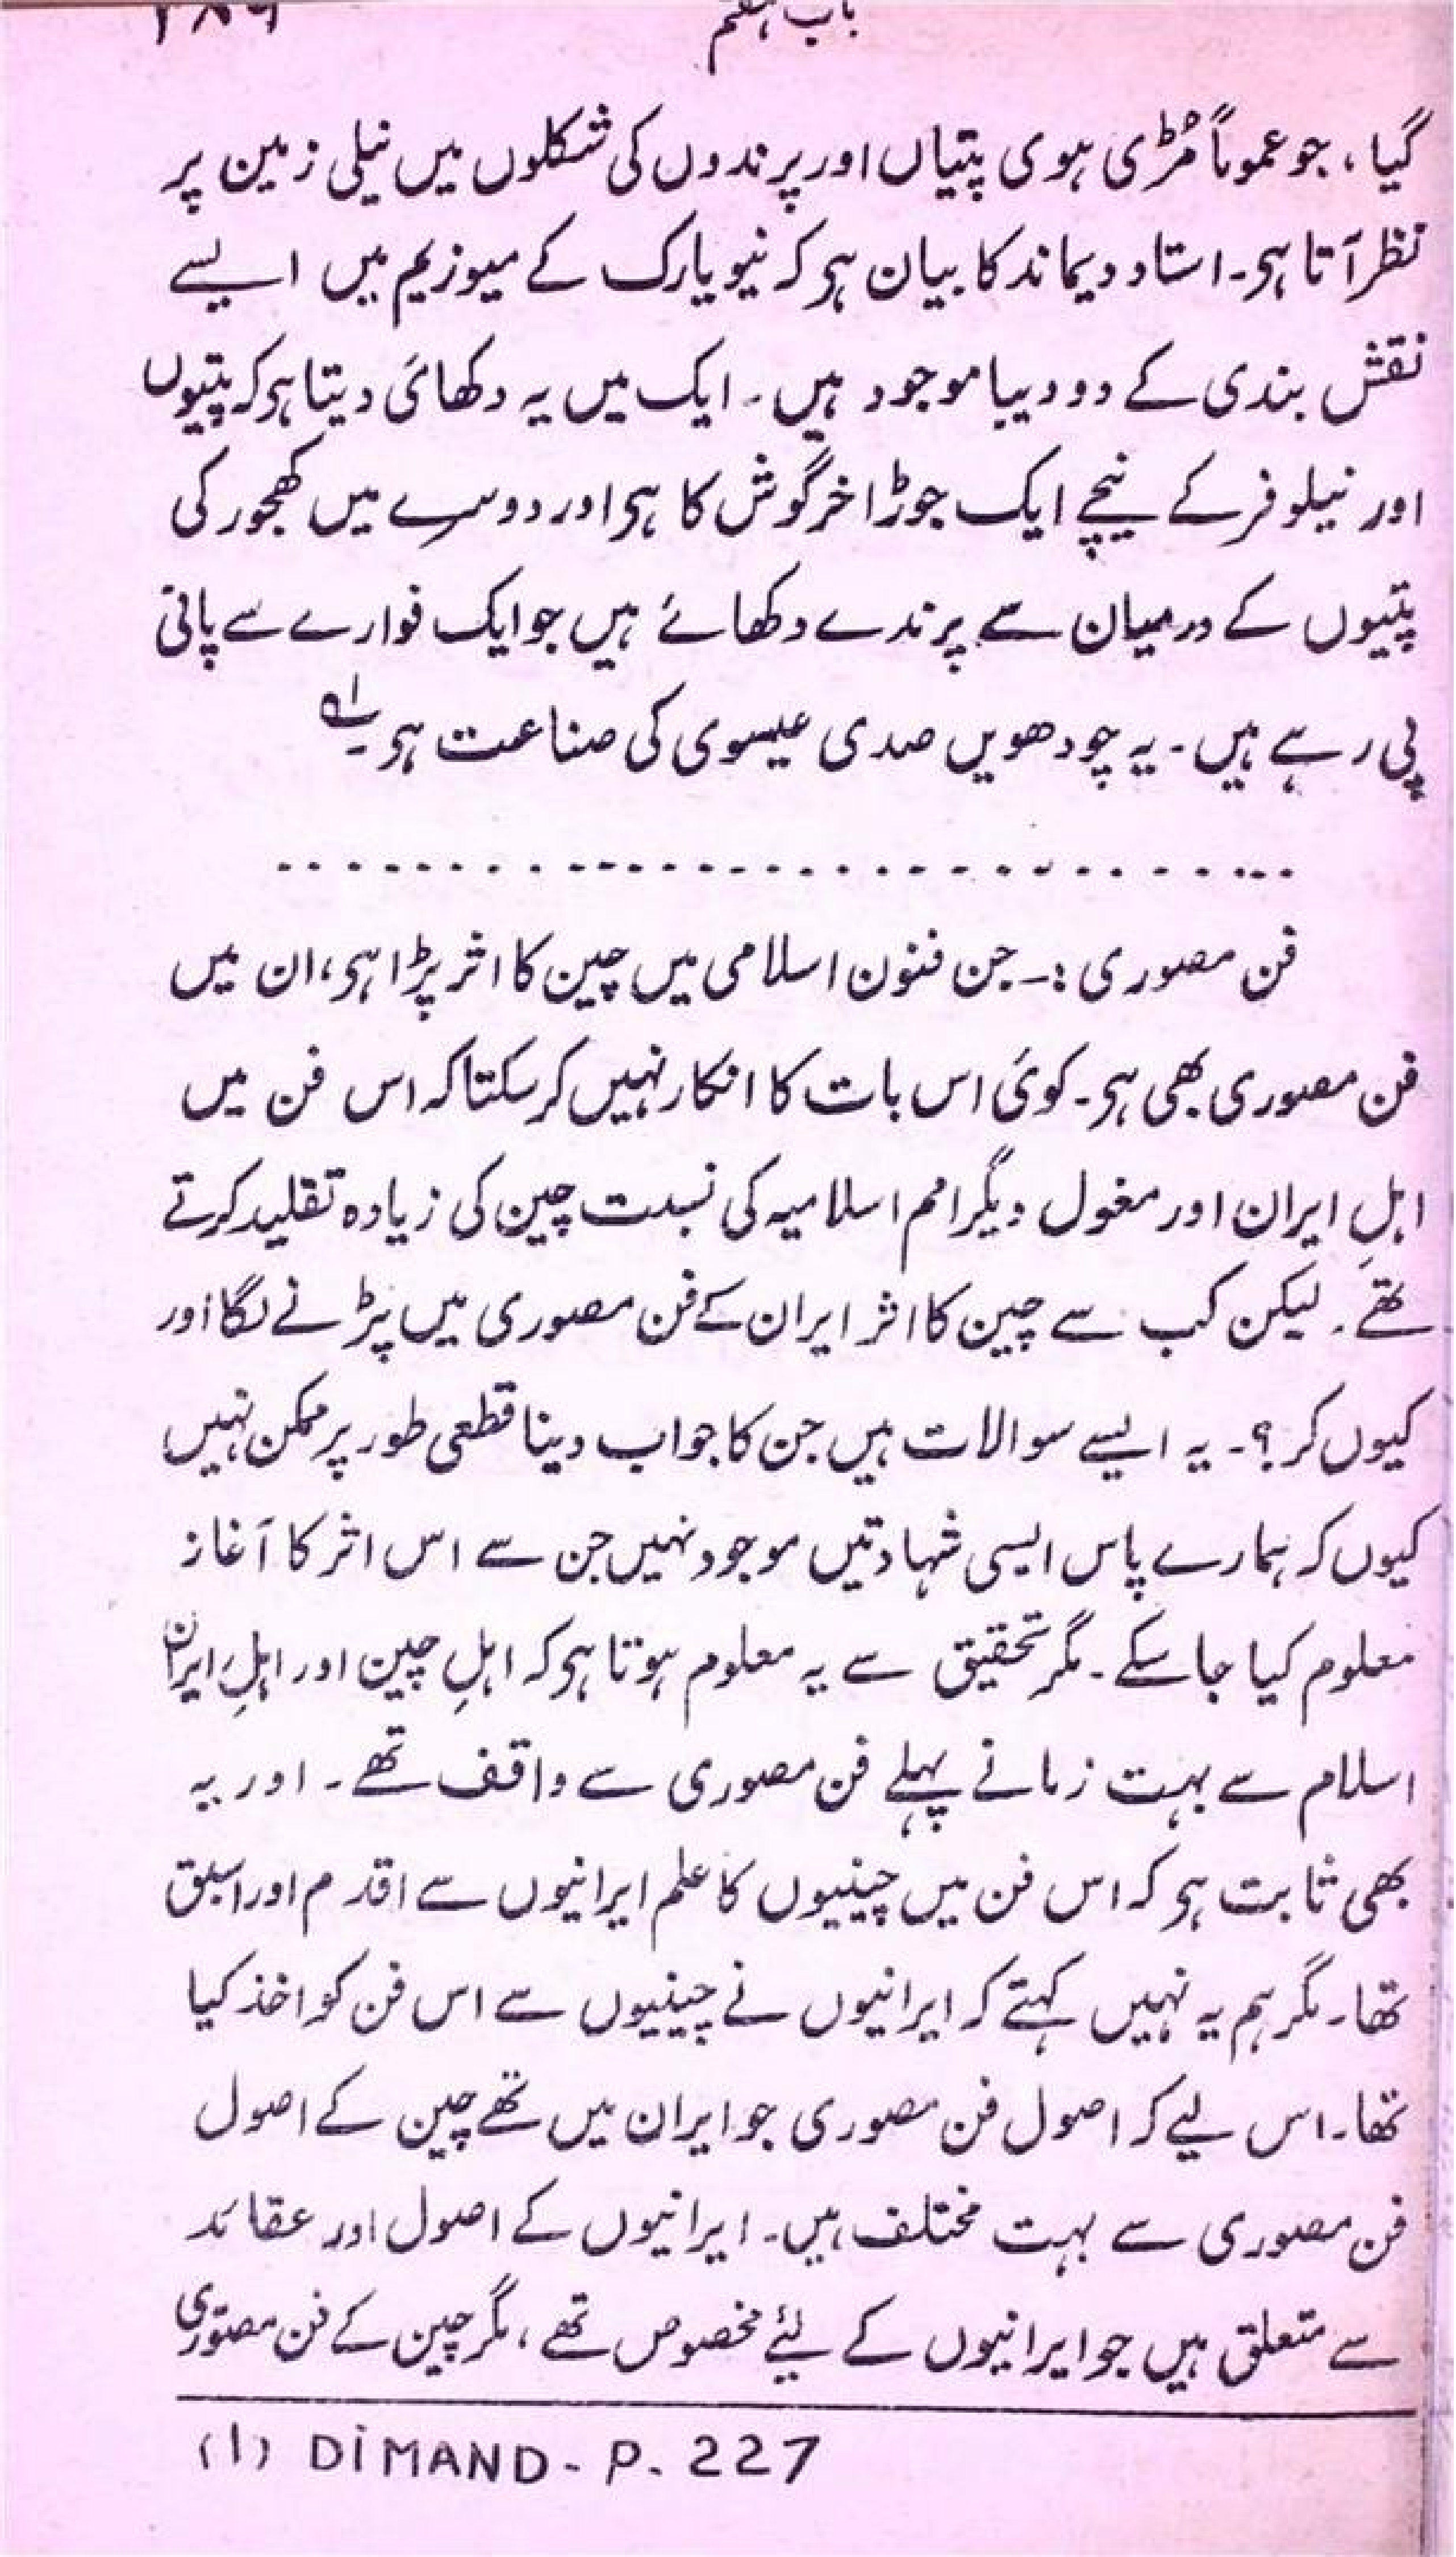 باب ہفتم
گیا، جو عموماً مُڑی ہوی پتیاں اور پرندوں کی شکلوں میں نیلی زمین پر
نظر آتا ہی۔ استاد دیماند کا بیان ہی کہ نیویارک کے میوزیم میں ایسے
نقش بندی کے دو دیبا موجود ہیں۔ ایک میں یہ دکھائی دیتا ہی کہ پتیوں
اور نیلوفر کے نیچے ایک جوڑا خرگوش کا ہی اور دوسرے میں کھجور کی
پتیوں کے درمیان سے پرندے دکھائے ہیں جو ایک فوارے سے پانی
پی رہے ہیں۔ یہ چودھویں صدی عیسوی کی صناعت ہی۔ ؎۱
فن مصوری :۔ جن فنون اسلامی میں چین کا اثر پڑا ہی، ان میں
فن مصوری بھی ہی۔ کوئی اس بات کا انکار نہیں کر سکتا کہ اس فن میں
اہلِ ایران اور مغول دیگر امم اسلامیہ کی نسبت چین کی زیادہ تقلید کرتے
تھے۔ لیکن کب سے چین کا اثر ایران کے فن مصوری میں پڑنے لگا اور
کیوں کر؟۔ یہ ایسے سوالات ہیں جن کا جواب دینا قطعی طور پر ممکن نہیں
کیوں کہ ہمارے پاس ایسی شہادتیں موجود نہیں جن سے اس اثر کا آغاز
معلوم کیا جا سکے۔ مگر تحقیق سے یہ معلوم ہوتا ہی کہ اہلِ چین اور اہلِ ایران
اسلام سے بہت زمانے پہلے فن مصوری سے واقف تھے۔ اور یہ
بھی ثابت ہی کہ اس فن میں چینیوں کا علم ایرانیوں سے اقدم اور اسبق
تھا۔ مگر ہم یہ نہیں کہتے کہ ایرانیوں نے چینیوں سے اس فن کو اخذ کیا
تھا۔ اس لیے کہ اصول فن مصوری جو ایران میں تھے چین کے اصول
فن مصوری سے بہت مختلف ہیں۔ ایرانیوں کے اصول اور عقائد
سے متعلق ہیں جو ایرانیوں کے لیٔے مخصوص تھے، مگر چین کے فن مصوّری
(1) DiMAND - P. 227